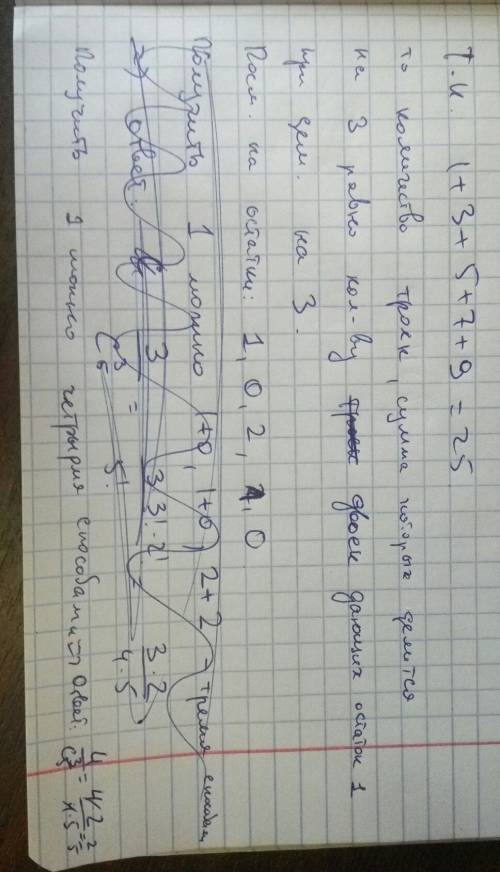 Т.к. 1+3+5+7+9=25
то количество троек, сумма которых делится
на 3 равно кол-ву двоек дающих остаток 1
при дел. на 3.
Посм. на остатки: 1, 0, 2, 1, 0
Получить 1 можно 1+0, 1+0, 2+2 - тремя способами
=> ответ. 3/C₅³ = 3·3!·2!/5! = 3·2/4·5
Получить 1 можно четырьмя способами => Ответ: 4/C₅³ = 4·2/4·5 = 2/5